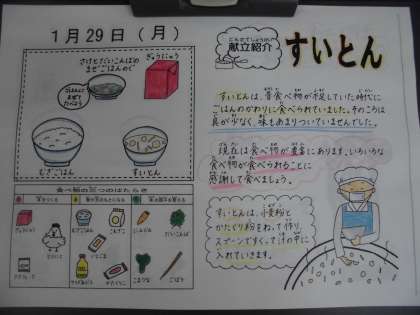 1月29日（月）
さけとだいこんばの
まぜごはんのぐ
ぎゅうにゅう
ごはんに
まぜて
たべよう
むぎごはん
すいとん
食べ物の三つのはたらき
ぎゅうにゅう
むぎごはん
こむぎこ
にんじん
だいこんば
とりにく
こまつな
ごぼう
こんだてしょうかい
献立紹介
すいとん
すいとんは、昔食べ物が不足していた時代に
ごはんのかわりに食べられていました。そのころは
具が少なく、味もあまりついていませんでした。
現在は食べ物が豊富にあります。いろいろな
食べ物が食べられることに
感謝して食べましょう。
すいとんは、小麦粉と
かたくり粉をねって作り、
スプーンですくって汁の中に
入れていきます。